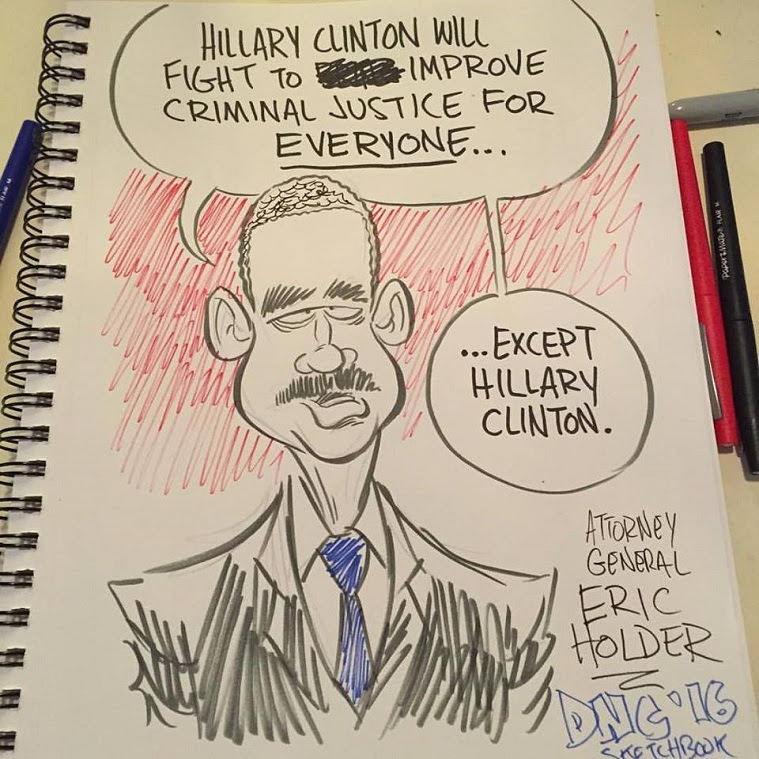 HILLARY CLINTON WILL
FIGHT TO IMPROVE
CRIMINAL JUSTICE FOR
EVERYONE...
...EXCEPT
HILLARY
CLINTON.
ATTORNEY
GENERAL
ERIC
HOLDER
DNC '16
SKETCHBOOK
PAPER MATE FLAIR M